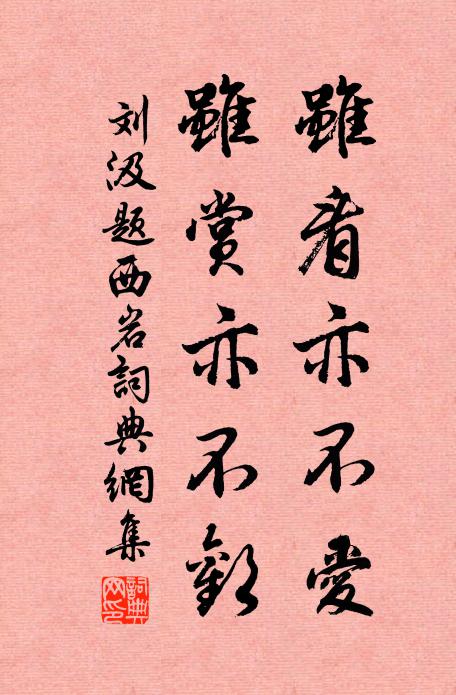 雖看亦不愛
雖賞亦不歡
刘汲题西岩詞典網集
詞典网印